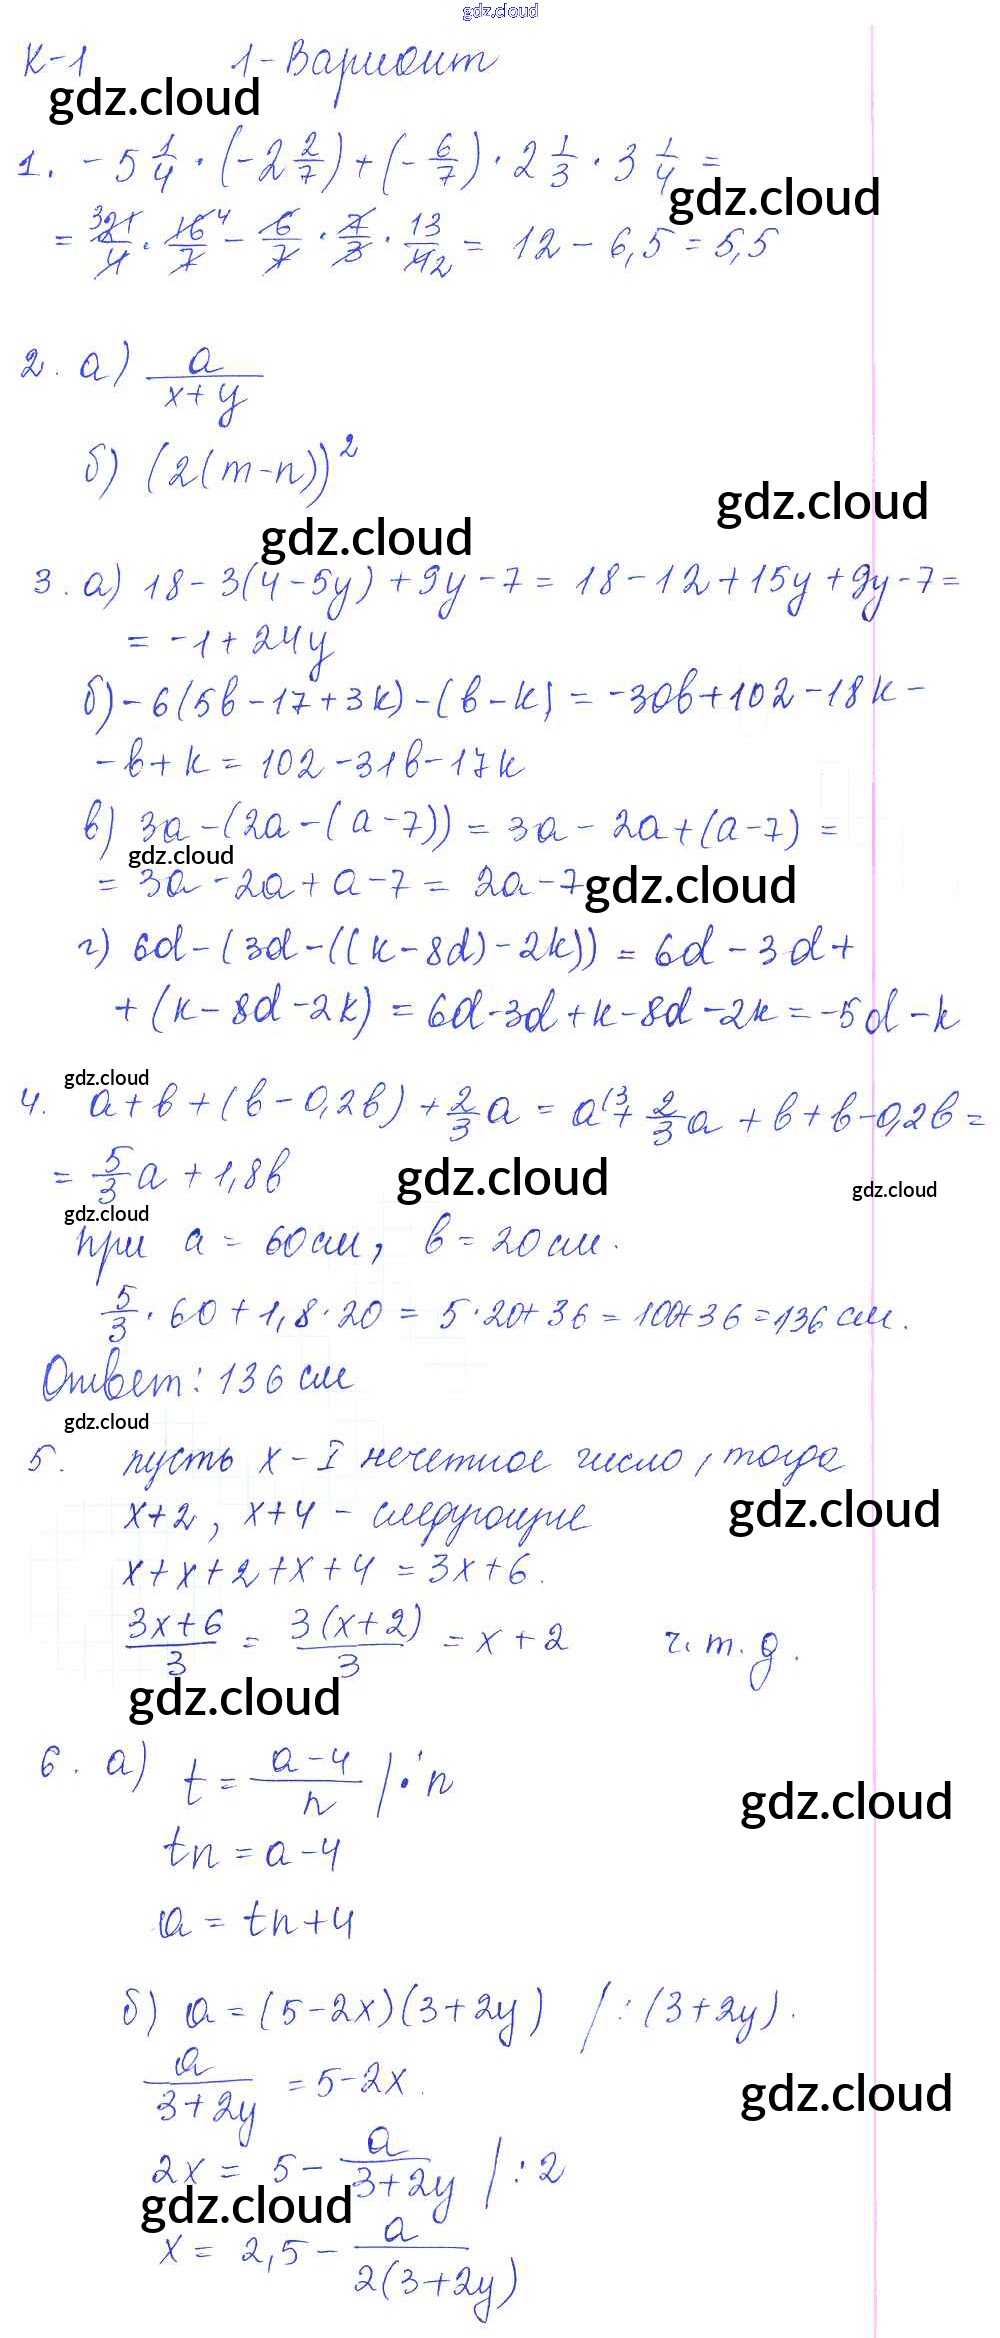 gdz.cloud
К-1 1-Вариант
gdz.cloud
1. -5 1/4 · (-2 2/7) + (-6/7) · 2 1/3 · 3 1/4 =
gdz.cloud
= 21/4 · 16/7 - 6/7 · 7/3 · 13/4 = 12 - 6,5 = 5,5
2. а) a/(x+y)
б) (2(m-n))²
gdz.cloud
gdz.cloud
3. а) 18-3(4-5y)+9y-7 = 18-12+15y+9y-7=
= -1+24y
б) -6(5b-17+3k)-(b-k) = -30b+102-18k-
-b+k = 102-31b-17k
в) 3a-(2a-(a-7)) = 3a-2a+(a-7) =
gdz.cloud
= 3a-2a+a-7 = 2a-7
gdz.cloud
г) 6d-(3d-((k-8d)-2k)) = 6d-3d+
+(k-8d-2k) = 6d-3d+k-8d-2k = -5d-k
gdz.cloud
4. a+b+(b-0,2b)+2/3 a = a⁽³+2/3 a+b+b-0,2b=
= 5/3 a + 1,8b
gdz.cloud
gdz.cloud
gdz.cloud
при a = 60см, b = 20см.
5/3 · 60+1,8·20 = 5·20+36 = 100+36 = 136 см.
Ответ: 136 см
gdz.cloud
5. пусть x - I нечетное число, тогда
gdz.cloud
x+2, x+4 - следующие
x+x+2+x+4 = 3x+6.
(3x+6)/3 = 3(x+2)/3 = x+2 ч.т.д.
gdz.cloud
6. а) t = (a-4)/n /·n
gdz.cloud
tn = a-4
a = tn+4
б) a = (5-2x)(3+2y) /:(3+2y).
a/(3+2y) = 5-2x.
gdz.cloud
2x = 5 - a/(3+2y) /:2
gdz.cloud
x = 2,5 - a/(2(3+2y))